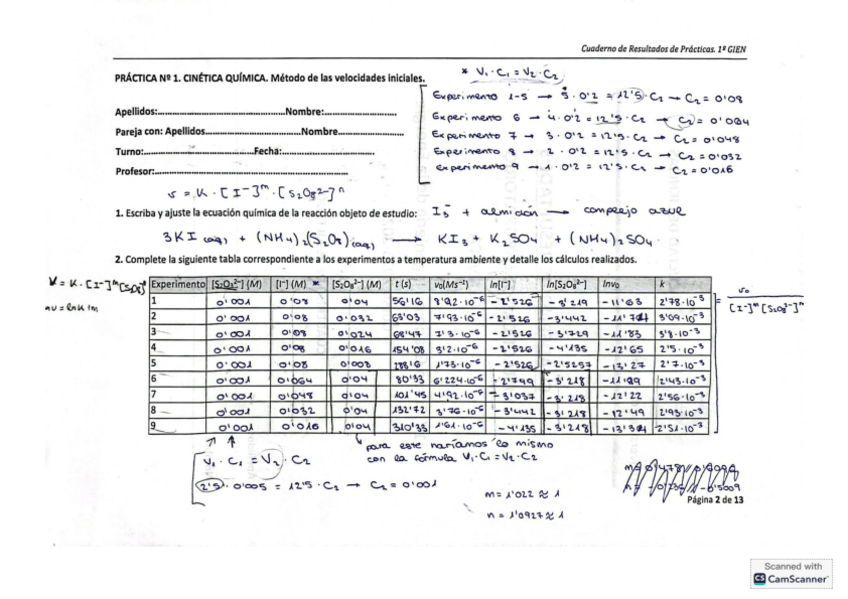 Cuaderno de Resultados de Prácticas. 1º GIEN
PRÁCTICA Nº 1. CINÉTICA QUÍMICA. Método de las velocidades iniciales.
* V₁·C₁ = V₂·C₂
Experimento 1-5 → 5·0'2 = 12'5·C₂ → C₂ = 0'08
Experimento 6 → 4·0'2 = 12'5·C₂ → C₂ = 0'064
Experimento 7 → 3·0'2 = 12'5·C₂ → C₂ = 0'048
Experimento 8 → 2·0'2 = 12'5·C₂ → C₂ = 0'032
Experimento 9 → 1·0'2 = 12'5·C₂ → C₂ = 0'016
Apellidos:..................Nombre:..................
Pareja con: Apellidos..................Nombre..................
Turno:..................Fecha:..................
Profesor:..................
v = K · [I⁻]ᵐ · [S₂O₈²⁻]ⁿ
1. Escriba y ajuste la ecuación química de la reacción objeto de estudio: I₃⁻ + almidón → complejo azul
3KI (aq) + (NH₄)₂(S₂O₈)(aq) → KI₃ + K₂SO₄ + (NH₄)₂SO₄
2. Complete la siguiente tabla correspondiente a los experimentos a temperatura ambiente y detalle los cálculos realizados.
Experimento [S₂O₃²⁻] (M) [I⁻] (M) * [S₂O₈²⁻] (M) t (s) v₀(Ms⁻¹) ln[I⁻] ln[S₂O₈²⁻] lnv₀ k
1 0'001 0'08 0'04 56'16 8'92·10⁻⁶ -2'526 -3'219 -11'63 2'78·10⁻³
2 0'001 0'08 0'032 63'03 7'93·10⁻⁶ -2'526 -3'442 3'09·10⁻³
3 0'001 0'08 0'024 68'47 7'3·10⁻⁶ -2'526 -3'729 -11'83 3'8·10⁻³
4 0'001 0'08 0'016 154'08 3'2·10⁻⁶ -2'526 -4'135 -12'65 2'5·10⁻³
5 0'001 0'08 0'008 1'73·10⁻⁶ -2'526 -13'27 2'7·10⁻³
6 0'001 0'064 0'04 80'33 6'224·10⁻⁶ -2'749 -3'218 2'43·10⁻³
7 0'001 0'048 0'04 101'45 4'92·10⁻⁶ -3'037 -3'218 -12'22 2'56·10⁻³
8 0'001 0'032 0'04 132'72 3'76·10⁻⁶ -3'442 -3'218 -12'49 2'93·10⁻³
9 0'001 0'016 0'04 310'33 1'61·10⁻⁶ -4'135 -3'218 2'51·10⁻³
= v₀ / [I⁻]ᵐ[S₂O₈²⁻]ⁿ
para este haríamos lo mismo
con la fórmula V₁·C₁ = V₂·C₂
V₁ · C₁ = V₂ · C₂
2'5 · 0'005 = 12'5 · C₂ → C₂ = 0'001
m = 1'022 ≈ 1
n = 1'0927 ≈ 1
Página 2 de 13
Scanned with
CS CamScanner